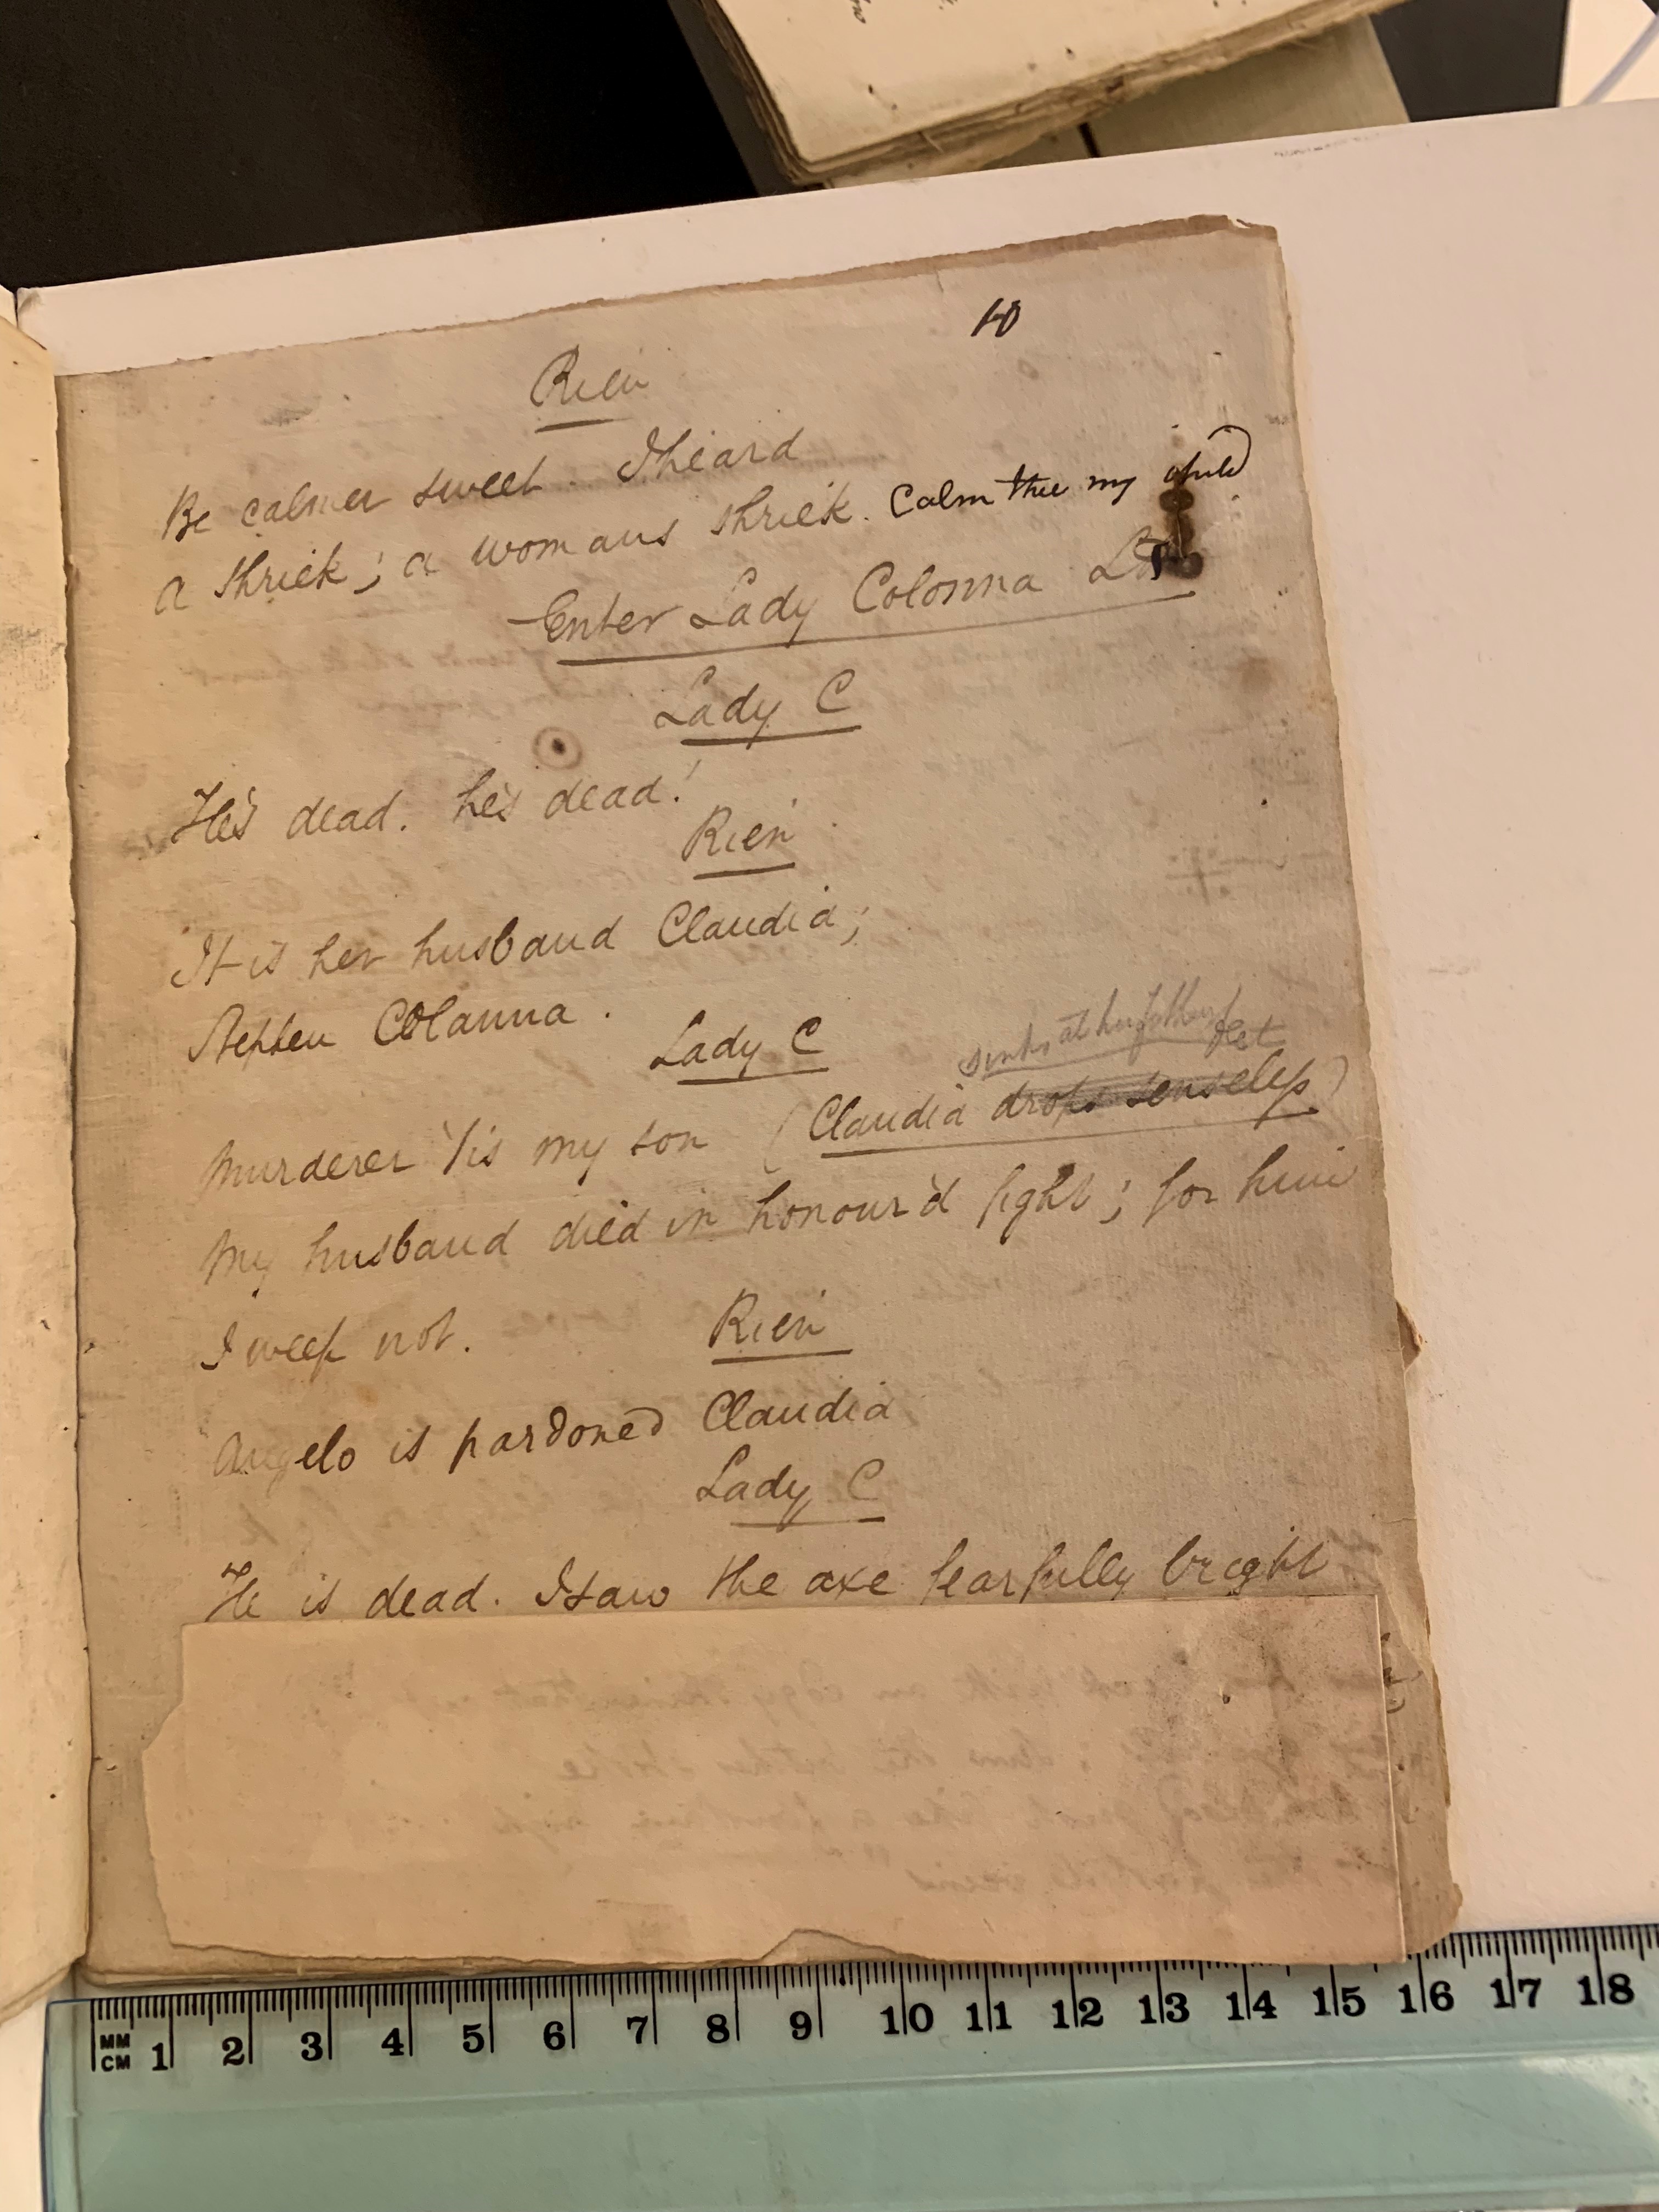 10
Rien
Be calmer sweet. I heard
a shriek; a womans shriek. Calm thee my child
Enter Lady Colonna
Lady C
He's dead. he's dead!
Rien
It is her husband Claudia;
Stephen Colanna.
Lady C
sinks at her father's feet
Murderer 'tis my son (Claudia drops senseless)
My husband died in honour'd fight; for him
I weep not.
Rien
Angelo is pardoned Claudia
Lady C
He is dead. I saw the axe fearfully bright
MM
CM 1 2 3 4 5 6 7 8 9 10 11 12 13 14 15 16 17 18